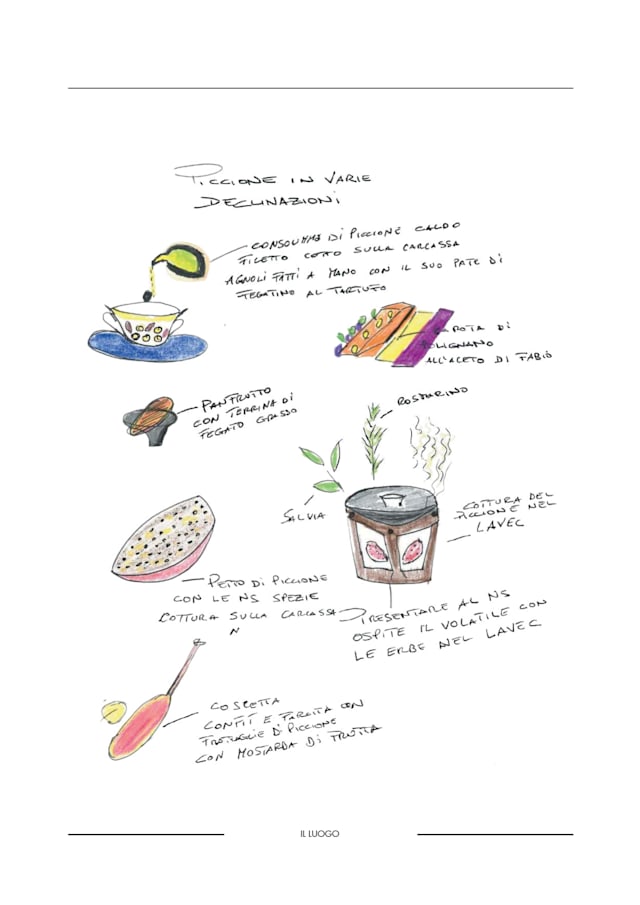 PICCIONE IN VARIE
DECLINAZIONI
CONSOUMMÈ DI PICCIONE CALDO
FILETTO COTTO SULLA CARCASSA
AGNOLI FATTI A MANO CON IL SUO PATE DI
FEGATINO AL TARTUFO
CAROTA DI
POLIGNANO
ALL'ACETO DI FABIO
PANFRUTTO
CON TERRINA DI
FEGATO GRASSO
ROSMARINO
SALVIA
COTTURA DEL
PICCIONE NEL
LAVEC
PETTO DI PICCIONE
CON LE NS SPEZIE
COTTURA SULLA CARCASSA
PRESENTARE AL NS
OSPITE IL VOLATILE CON
LE ERBE NEL LAVEC
COSCETTA
CONFIT E FARCITA CON
FRATTAGLIE DI PICCIONE
CON MOSTARDA DI FRUTTA
IL LUOGO